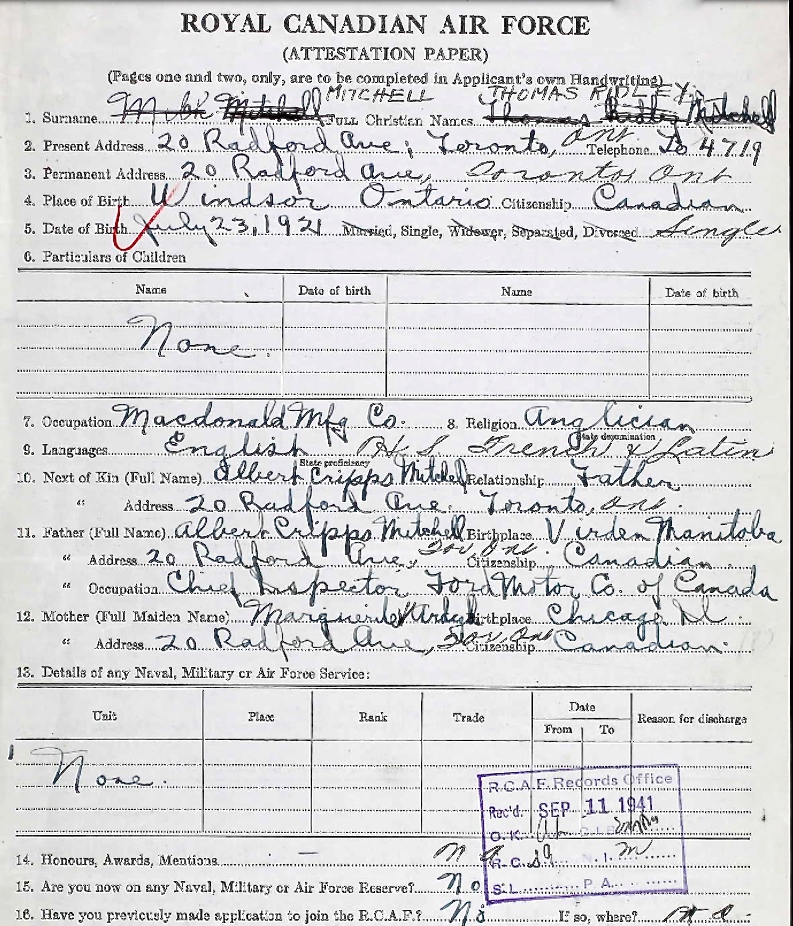 ROYAL CANADIAN AIR FORCE
(ATTESTATION PAPER)
(Pages one and two, only, are to be completed in Applicant's own Handwriting)
MITCHELL THOMAS RIDLEY
1. Surname Mitchell Full Christian Names Thomas Ridley Mitchell
2. Present Address 20 Radford Ave; Toronto, Ont Telephone Lo 4719
3. Permanent Address 20 Radford Ave, Toronto, Ont
4. Place of Birth Windsor Ontario Citizenship Canadian
5. Date of Birth July 23, 1921 Married, Single, Widower, Separated, Divorced Single
6. Particulars of Children
Name Date of birth Name Date of birth
None.
7. Occupation Macdonald Mfg Co. 8. Religion Anglician
State denomination
9. Languages English H.S. French & Latin
State proficiency
10. Next of Kin (Full Name) Albert Cripps Mitchell Relationship Father
" Address 20 Radford Ave. Toronto, Ont.
11. Father (Full Name) Albert Cripps Mitchell Birthplace Virden Manitoba
" Address 20 Radford Ave, Ont. Citizenship Canadian
" Occupation Chief Inspector Ford Motor Co. of Canada
12. Mother (Full Maiden Name) Marguerite Birthplace Chicago Ill.
" Address 20 Radford Ave, Ont Citizenship Canadian.
13. Details of any Naval, Military or Air Force Service:
Unit Place Rank Trade Date Reason for discharge
From To
None.
R.C.A.F. Records Office
Rec'd. SEP 11 1941
O.K. C.I.B.
R.C. N.I.
S.L. P.A.
14. Honours, Awards, Mentions
15. Are you now on any Naval, Military or Air Force Reserve? No
16. Have you previously made application to join the R.C.A.F.? No If so, where?